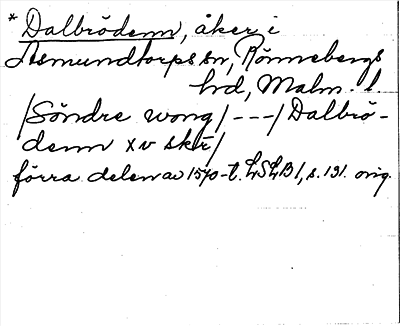 * Dalbrödenn, åker i
Asmundtorps sn, Rönnebergs
hrd, Malm. l.
/Söndre wong/---/Dalbrö-
denn xv skr/
förra delen av 1570-t. LSLB1, s. 191. orig.